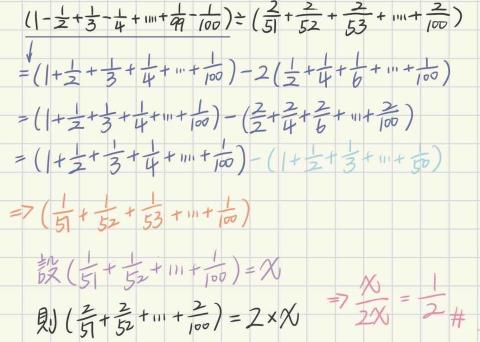 (1-1/2+1/3-1/4+...+1/99-1/100)÷(2/51+2/52+2/53+...+2/100)
↓
=(1+1/2+1/3+1/4+...+1/100)-2(1/2+1/4+1/6+...+1/100)
=(1+1/2+1/3+1/4+...+1/100)-(2/2+2/4+2/6+...+2/100)
=(1+1/2+1/3+1/4+...+1/100)-(1+1/2+1/3+...+1/50)
⇒(1/51+1/52+1/53+...+1/100)
設(1/51+1/52+...+1/100)=x
則(2/51+2/52+...+2/100)=2×x
⇒ x/2x = 1/2 #